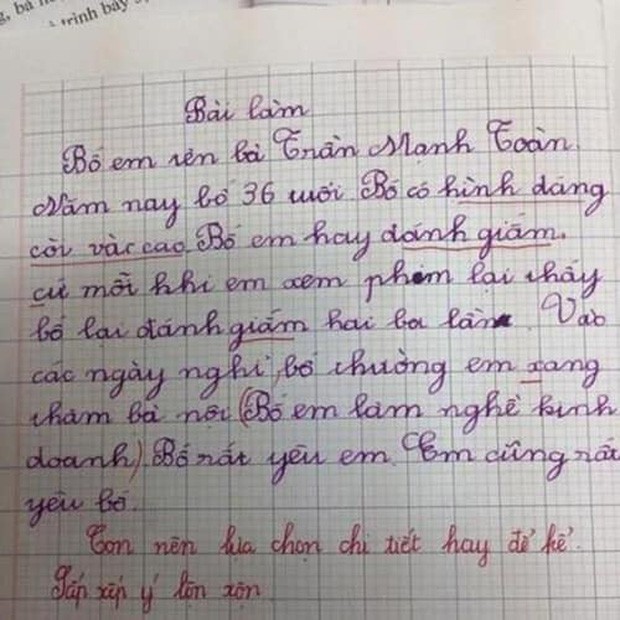 g, bá
trình bày
Bài làm
Bố em tên là Trần Mạnh Toàn.
Năm nay bố 36 tuổi Bố có hình dáng
còi và cao. Bố em hay đánh giấm.
cứ mỗi khi em xem phim lại thấy
bố lại đánh giấm hai ba lần. Vào
các ngày nghỉ, bố thường em xang
thăm bà nội (Bố em làm nghề kinh
doanh) Bố rất yêu em. Em cũng rất
yêu bố.
Con nên lựa chọn chi tiết hay để kể.
Sắp xếp ý lộn xộn